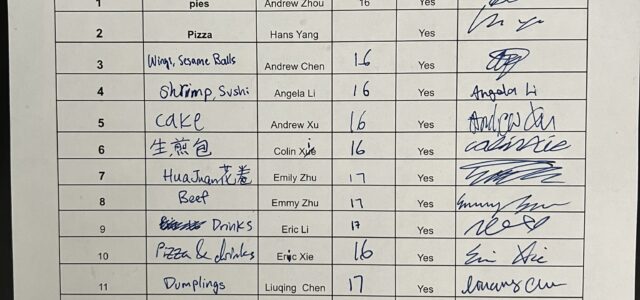 1 pies Andrew Zhou 16 Yes
2 Pizza Hans Yang Yes
3 Wings, Sesame Balls Andrew Chen 16 Yes
4 Shrimp, Sushi Angela Li 16 Yes Angela Li
5 cake Andrew Xu 16 Yes Andrew Xu
6 生煎包 Colin Xie 16 Yes Colin Xie
7 HuaJuan花卷 Emily Zhu 17 Yes
8 Beef Emmy Zhu 17 Yes
9 Drinks Eric Li 17 Yes
10 Pizza & drinks Eric Xie 16 Yes Eric Xie
11 Dumplings Liuqing Chen 17 Yes